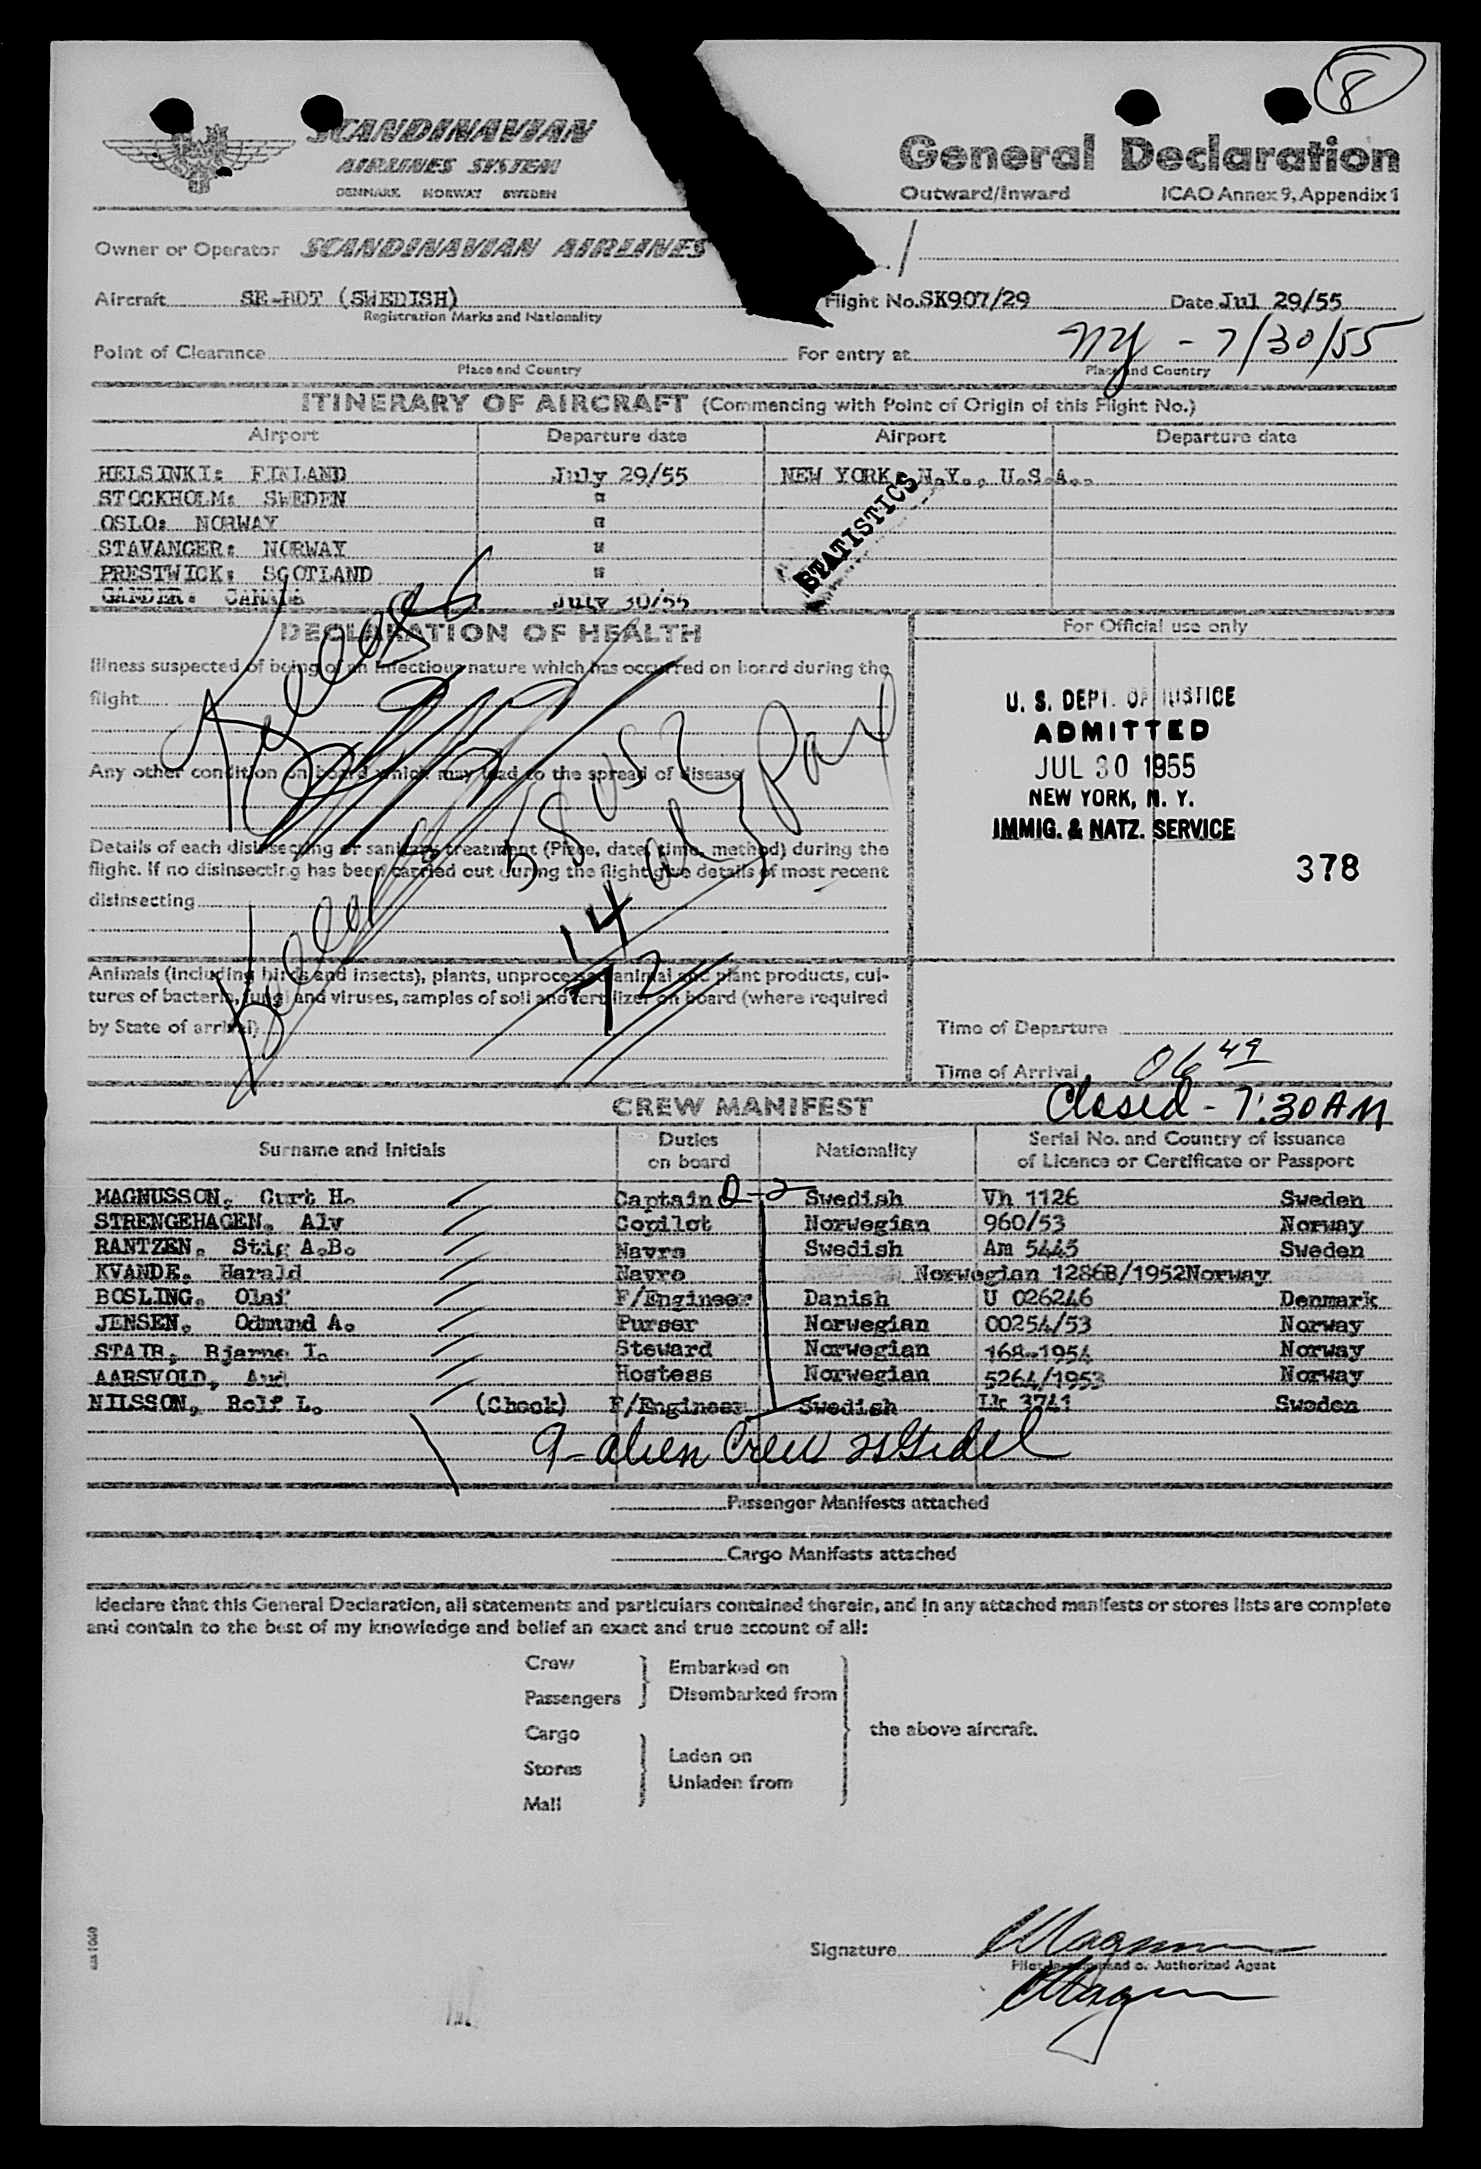 8
SCANDINAVIAN
AIRLINES SYSTEM
DENMARK NORWAY SWEDEN
General Declaration
Outward/Inward ICAO Annex 9, Appendix 1
Owner or Operator SCANDINAVIAN AIRLINES
Aircraft SE-BDT (SWEDISH) Flight No. SK907/29 Date Jul 29/55
Registration Marks and Nationality
Point of Clearance For entry at NY - 7/30/55
Place and Country Place and Country
ITINERARY OF AIRCRAFT (Commencing with Point of Origin of this Flight No.)
Airport Departure date Airport Departure date
HELSINKI: FINLAND July 29/55 NEW YORK, N.Y., U.S.A..
STOCKHOLM: SWEDEN "
OSLO: NORWAY "
STAVANGER: NORWAY "
PRESTWICK: SCOTLAND "
GANDER: CANADA July 30/55
STATISTICS
DECLARATION OF HEALTH
For Official use only
Illness suspected of being of an infectious nature which has occurred on board during the
flight
Any other condition on board which may lead to the spread of disease
Details of each disinsecting or sanitary treatment (Place, date, time, method) during the
flight. If no disinsecting has been carried out during the flight give details of most recent
disinsecting
14
72
Animals (including birds and insects), plants, unprocessed animal and plant products, cul-
tures of bacteria, fungi and viruses, samples of soil and fertilizer on board (where required
by State of arrival)
U. S. DEPT. OF JUSTICE
ADMITTED
JUL 30 1955
NEW YORK, N. Y.
IMMIG. & NATZ. SERVICE
378
Time of Departure
Time of Arrival 0649
Closed - 7:30 AM
CREW MANIFEST
Surname and Initials Duties on board Nationality Serial No. and Country of issuance of Licence or Certificate or Passport
MAGNUSSON, Curt H. Captain D-2 Swedish Vh 1126 Sweden
STRENGEHAGEN, Alv Copilot Norwegian 960/53 Norway
RANTZEN, Stig A.B. Navro Swedish Am 5445 Sweden
KVANDE, Harald Navro Norwegian 1286B/1952 Norway
BOSLING, Olaf F/Engineer Danish U 026246 Denmark
JENSEN, Odmund A. Purser Norwegian 00254/53 Norway
STAIB, Bjarne I. Steward Norwegian 168-1954 Norway
AARSVOLD, Aud Hostess Norwegian 5264/1953 Norway
NILSSON, Rolf L. (Check) F/Engineer Swedish Lk 3741 Sweden
9-alien Crew
Passenger Manifests attached
Cargo Manifests attached
I declare that this General Declaration, all statements and particulars contained therein, and in any attached manifests or stores lists are complete
and contain to the best of my knowledge and belief an exact and true account of all:
Crew Embarked on
Passengers Disembarked from
Cargo the above aircraft.
Stores Laden on
Mail Unladen from
Signature
Pilot in command or Authorized Agent